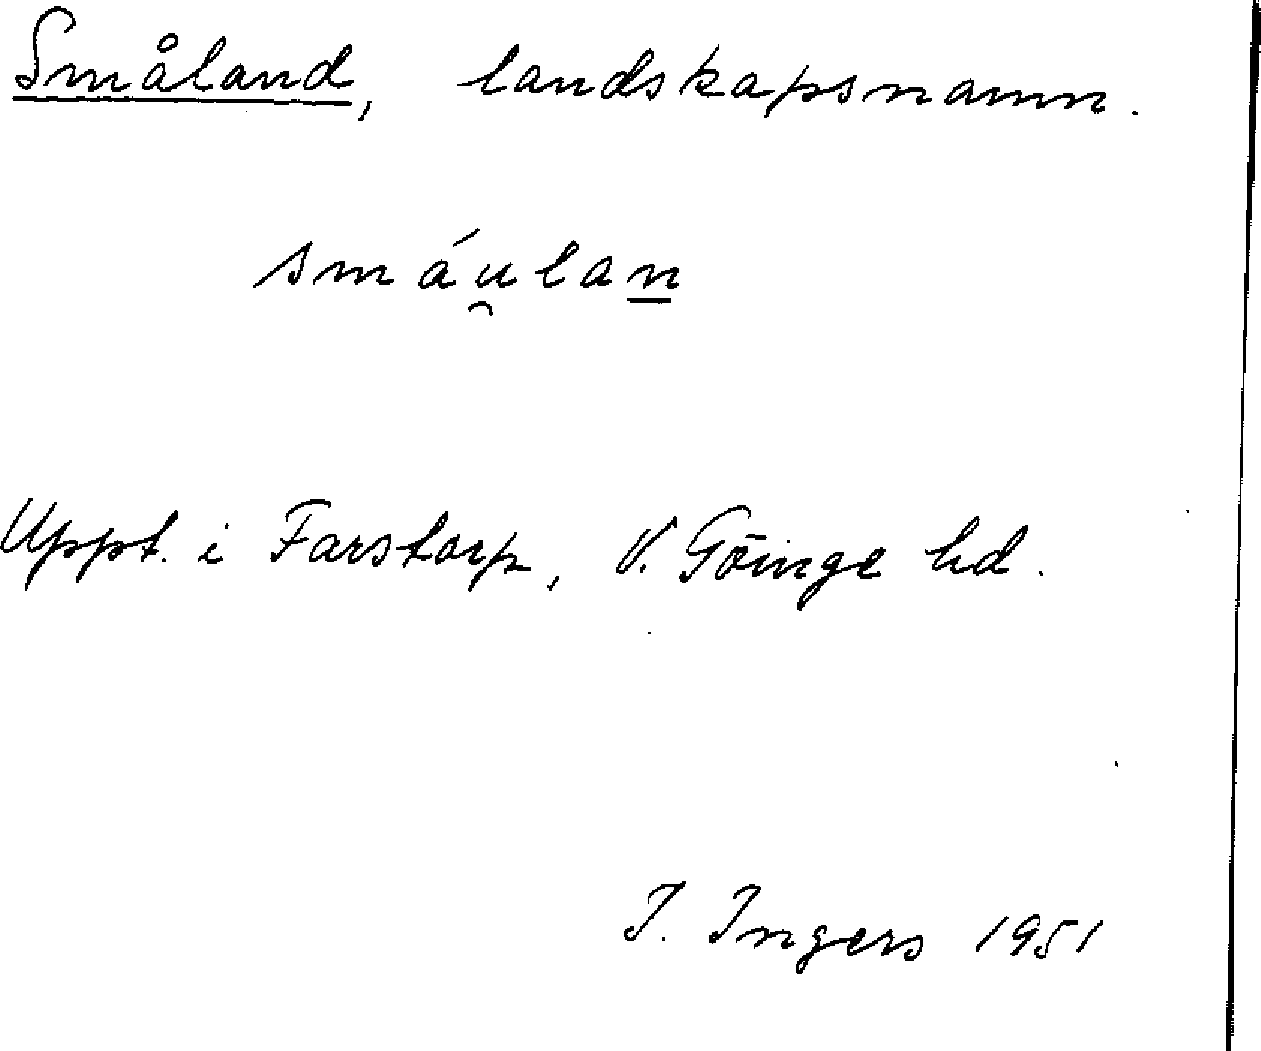 Småland, landskapsnamn.
smáu̯lan̲
Uppt. i Farstorp, V. Göinge hd.
I. Ingers 1951